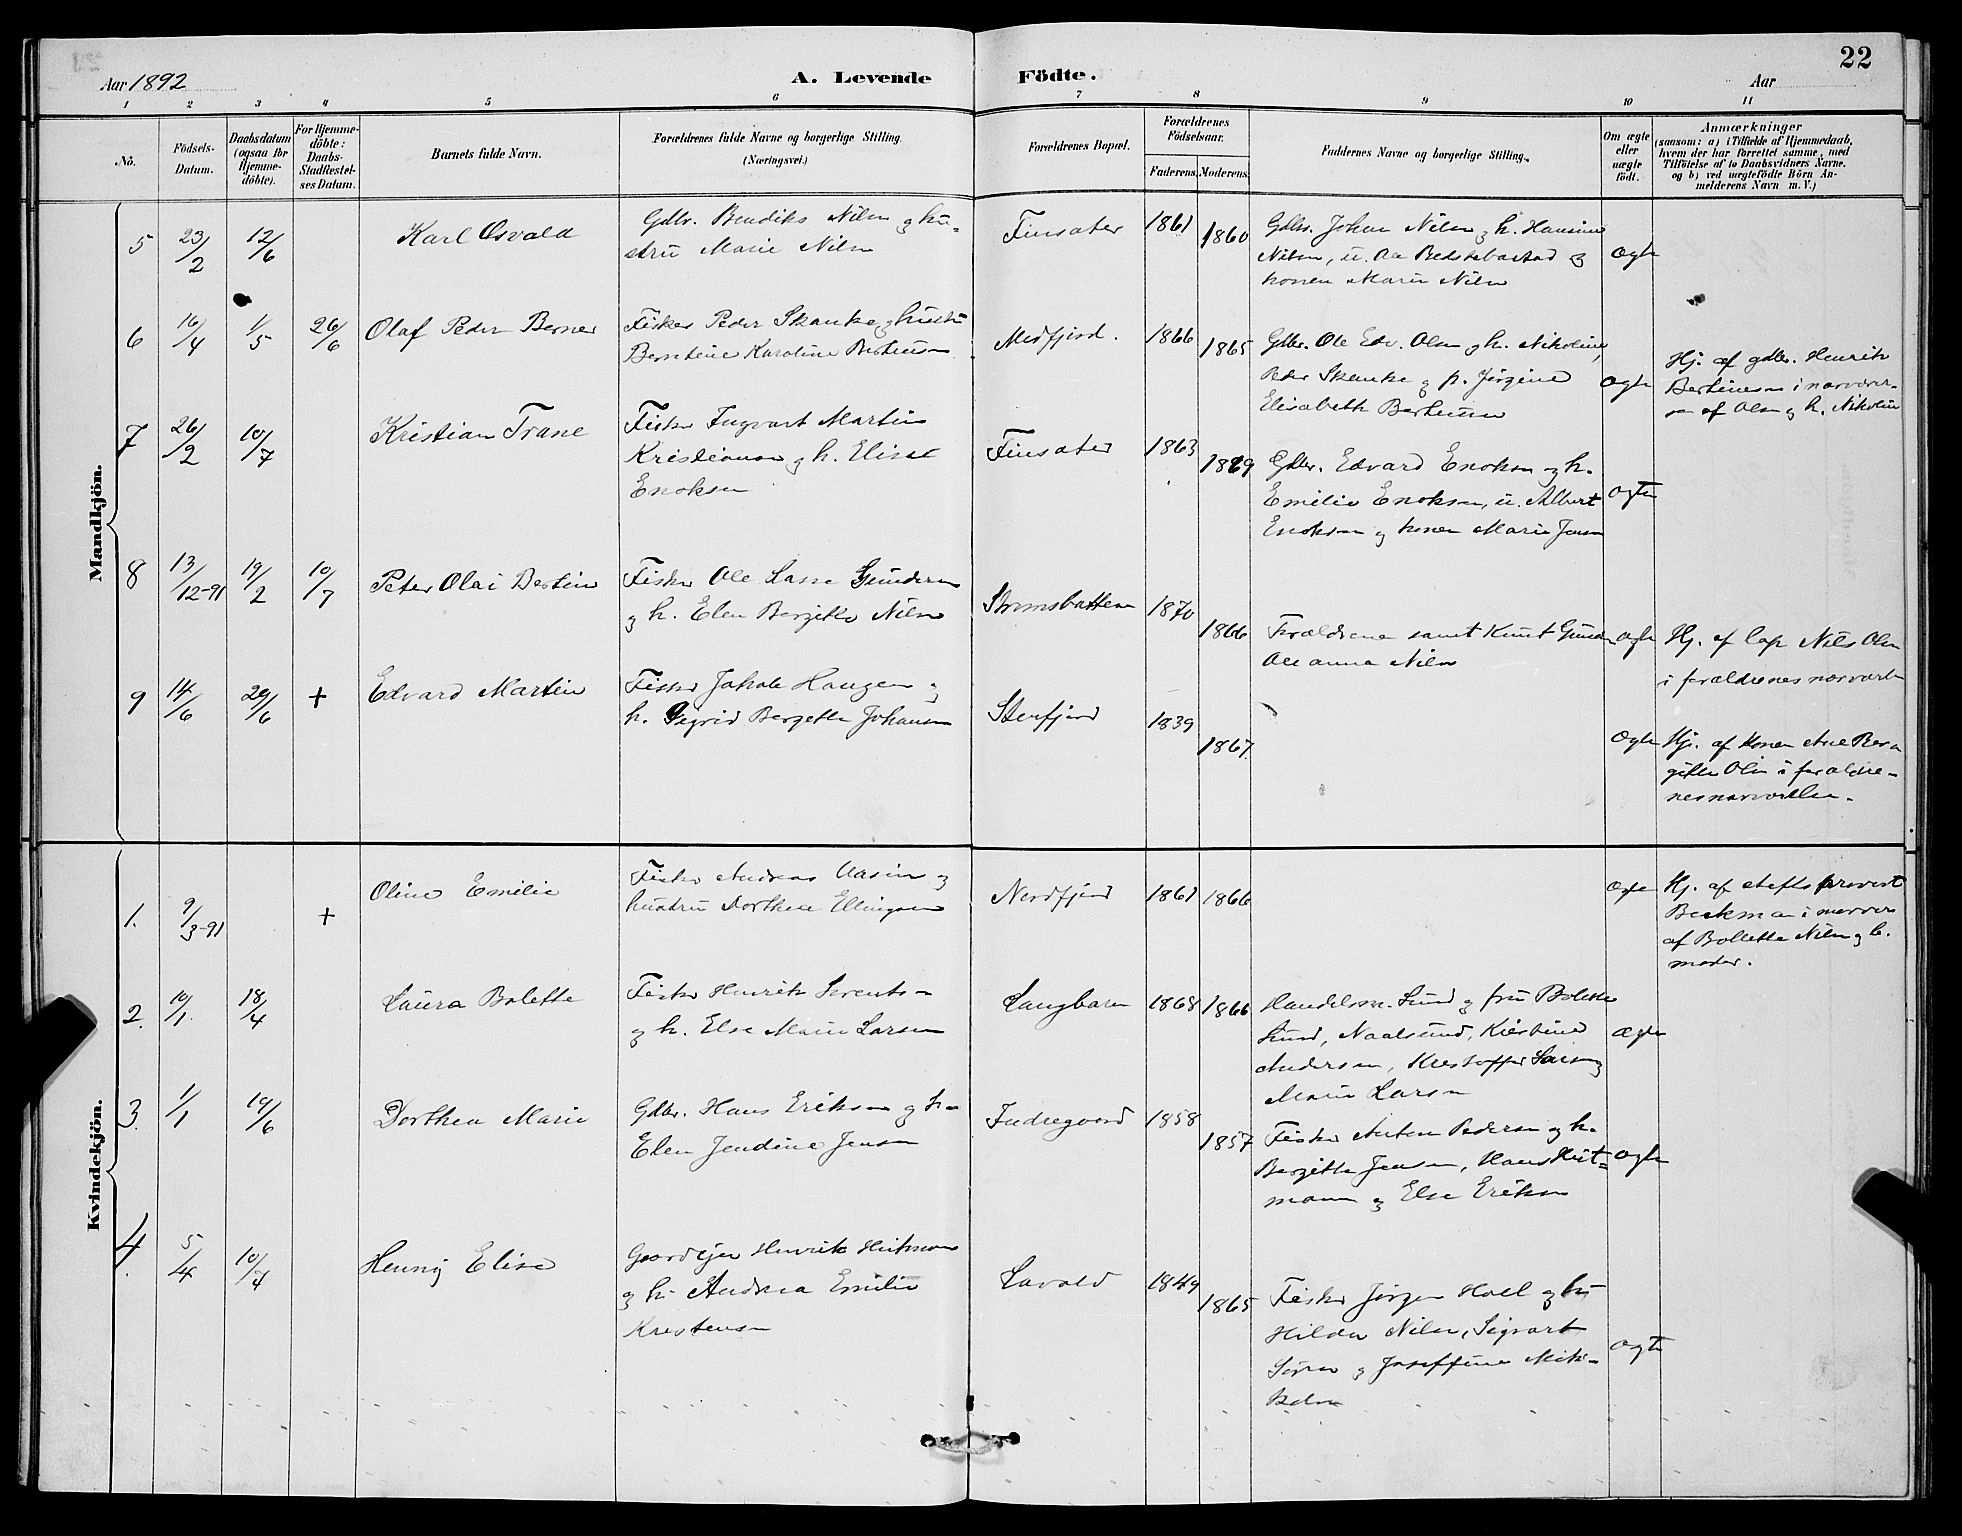 22
Aar 1892
A. Levende Födte.
Aar
1 2 3 4 5 6 7 8 9 10 11
No.
Födsels-
Datum.
Daabsdatum
(ogsaa for
Hjemme-
döbte).
For Hjemme-
döbte:
Daabs-
Stadfæstel-
ses Datum.
Barnets fulde Navn.
Forældrenes fulde Navne og borgerlige Stilling.
(Næringsvei.)
Forældrenes Bopæl.
Forældrenes
Födselsaar.
Faderens.
Moderens.
Faddernes Navne og borgerlige Stilling.
Om ægte
eller
uægte
födt.
Anmærkninger
(saasom: a) i Tilfælde af Hjemmedaab,
hvem der har forrettet samme, med
Tilföielse af to Daabsvidners Navne.
og b) ved uægtefödte Börn An-
melderens Navn m. V.)
Mandkjön.
5
23/2
12/6
Karl Osvald
Gdbr. Bendiks Nilsn og hu-
stru Marie Nilsn
Finsæter
1861
1860
Gdbr. Johan Nilsn og h. Hansine
Nilsn, u. Aa
konen Marie Nilsn
ægte
6
16/4
1/5
26/6
Olaf Peder Berner
Fisker Peder Skanke og hustru
Berntine Karoline Bertinsn
Medfjord.
1866
1865
Gdbr. Ole Edv. Olsn og h. Nikoline,
Peder Skanke og p. Jørgine
Elisabeth Bertinsn
ægte
Hj. af gdbr. Henrik
Bertinesn i nærværel-
se af Olsn og h. Nikoline
7
26/2
10/7
Kristian Trane
Fisker Ingvart Martin
Kristiansn og h. Elise
Enoksn
Finsæter
1863
1869
Gdbr. Edvard Enoksn og h.
Emilie Enoksn, u. Albert
Enoksn og konen Marie Jensn
ægte
8
13/12-91
19/2
10/7
Peter Olai Bertin
Fisker Ole Lasse Gundersn
og h. Elen Bergitte Nilsn
Strumsbotten
1870
1866
Forældrene samt Knut
Ole Anna Nilsn
ægte
Hj. af Lap Nils Olsn
i forældrenes nærværelse
9
14/6
29/6
+
Edvard Martin
Fisker Jakob Haugen og
h. Sigrid Bergette Johansn
Stenfjord
1839
1867.
ægte
Hj. af konen Ane Ber-
gitte Olsn i forældre-
nes nærværelse.
Kvindekjön.
1.
9/3-91
+
Oline Emilie
Fisker Andreas og
hustru Dorthea Ellingsen
Nordfjord
1861
1866
ægte
Hj. af
Beckman i nærvær
af Bollette Nilsn og b.
moder.
2.
10/1.
18/4
Laura Bolette
Fisker Henrik Lorents-
og h. Else Marie Larsen
Langbaren
1868
1866
Handelsm. Lund og fru Bolette
Lund, Naalsund, Kristine
Andersen, Kristoffer Larsn og
Marie Larsn
ægte
3.
1/1
19/6
Dorthea Marie
Gdbr. Hans Eriksn og h.
Elen Jendine Jensn
Indregaard
1858
1857
Fisker Anton Pedersn og h.
Bergitte Jensn, Hans Heit-
mann og Else Eriksn
ægte
4.
5/4
10/7
Henny Elise
Gaardejer Henrik Heitmann
og h. Andrea Emilie
Kristensn
Lavold
1849
1865
Fisker Jørgen Hoel og hu
Hilda Nilsn, Sigvart
og Joseffine Mik-
kelsn
ægte